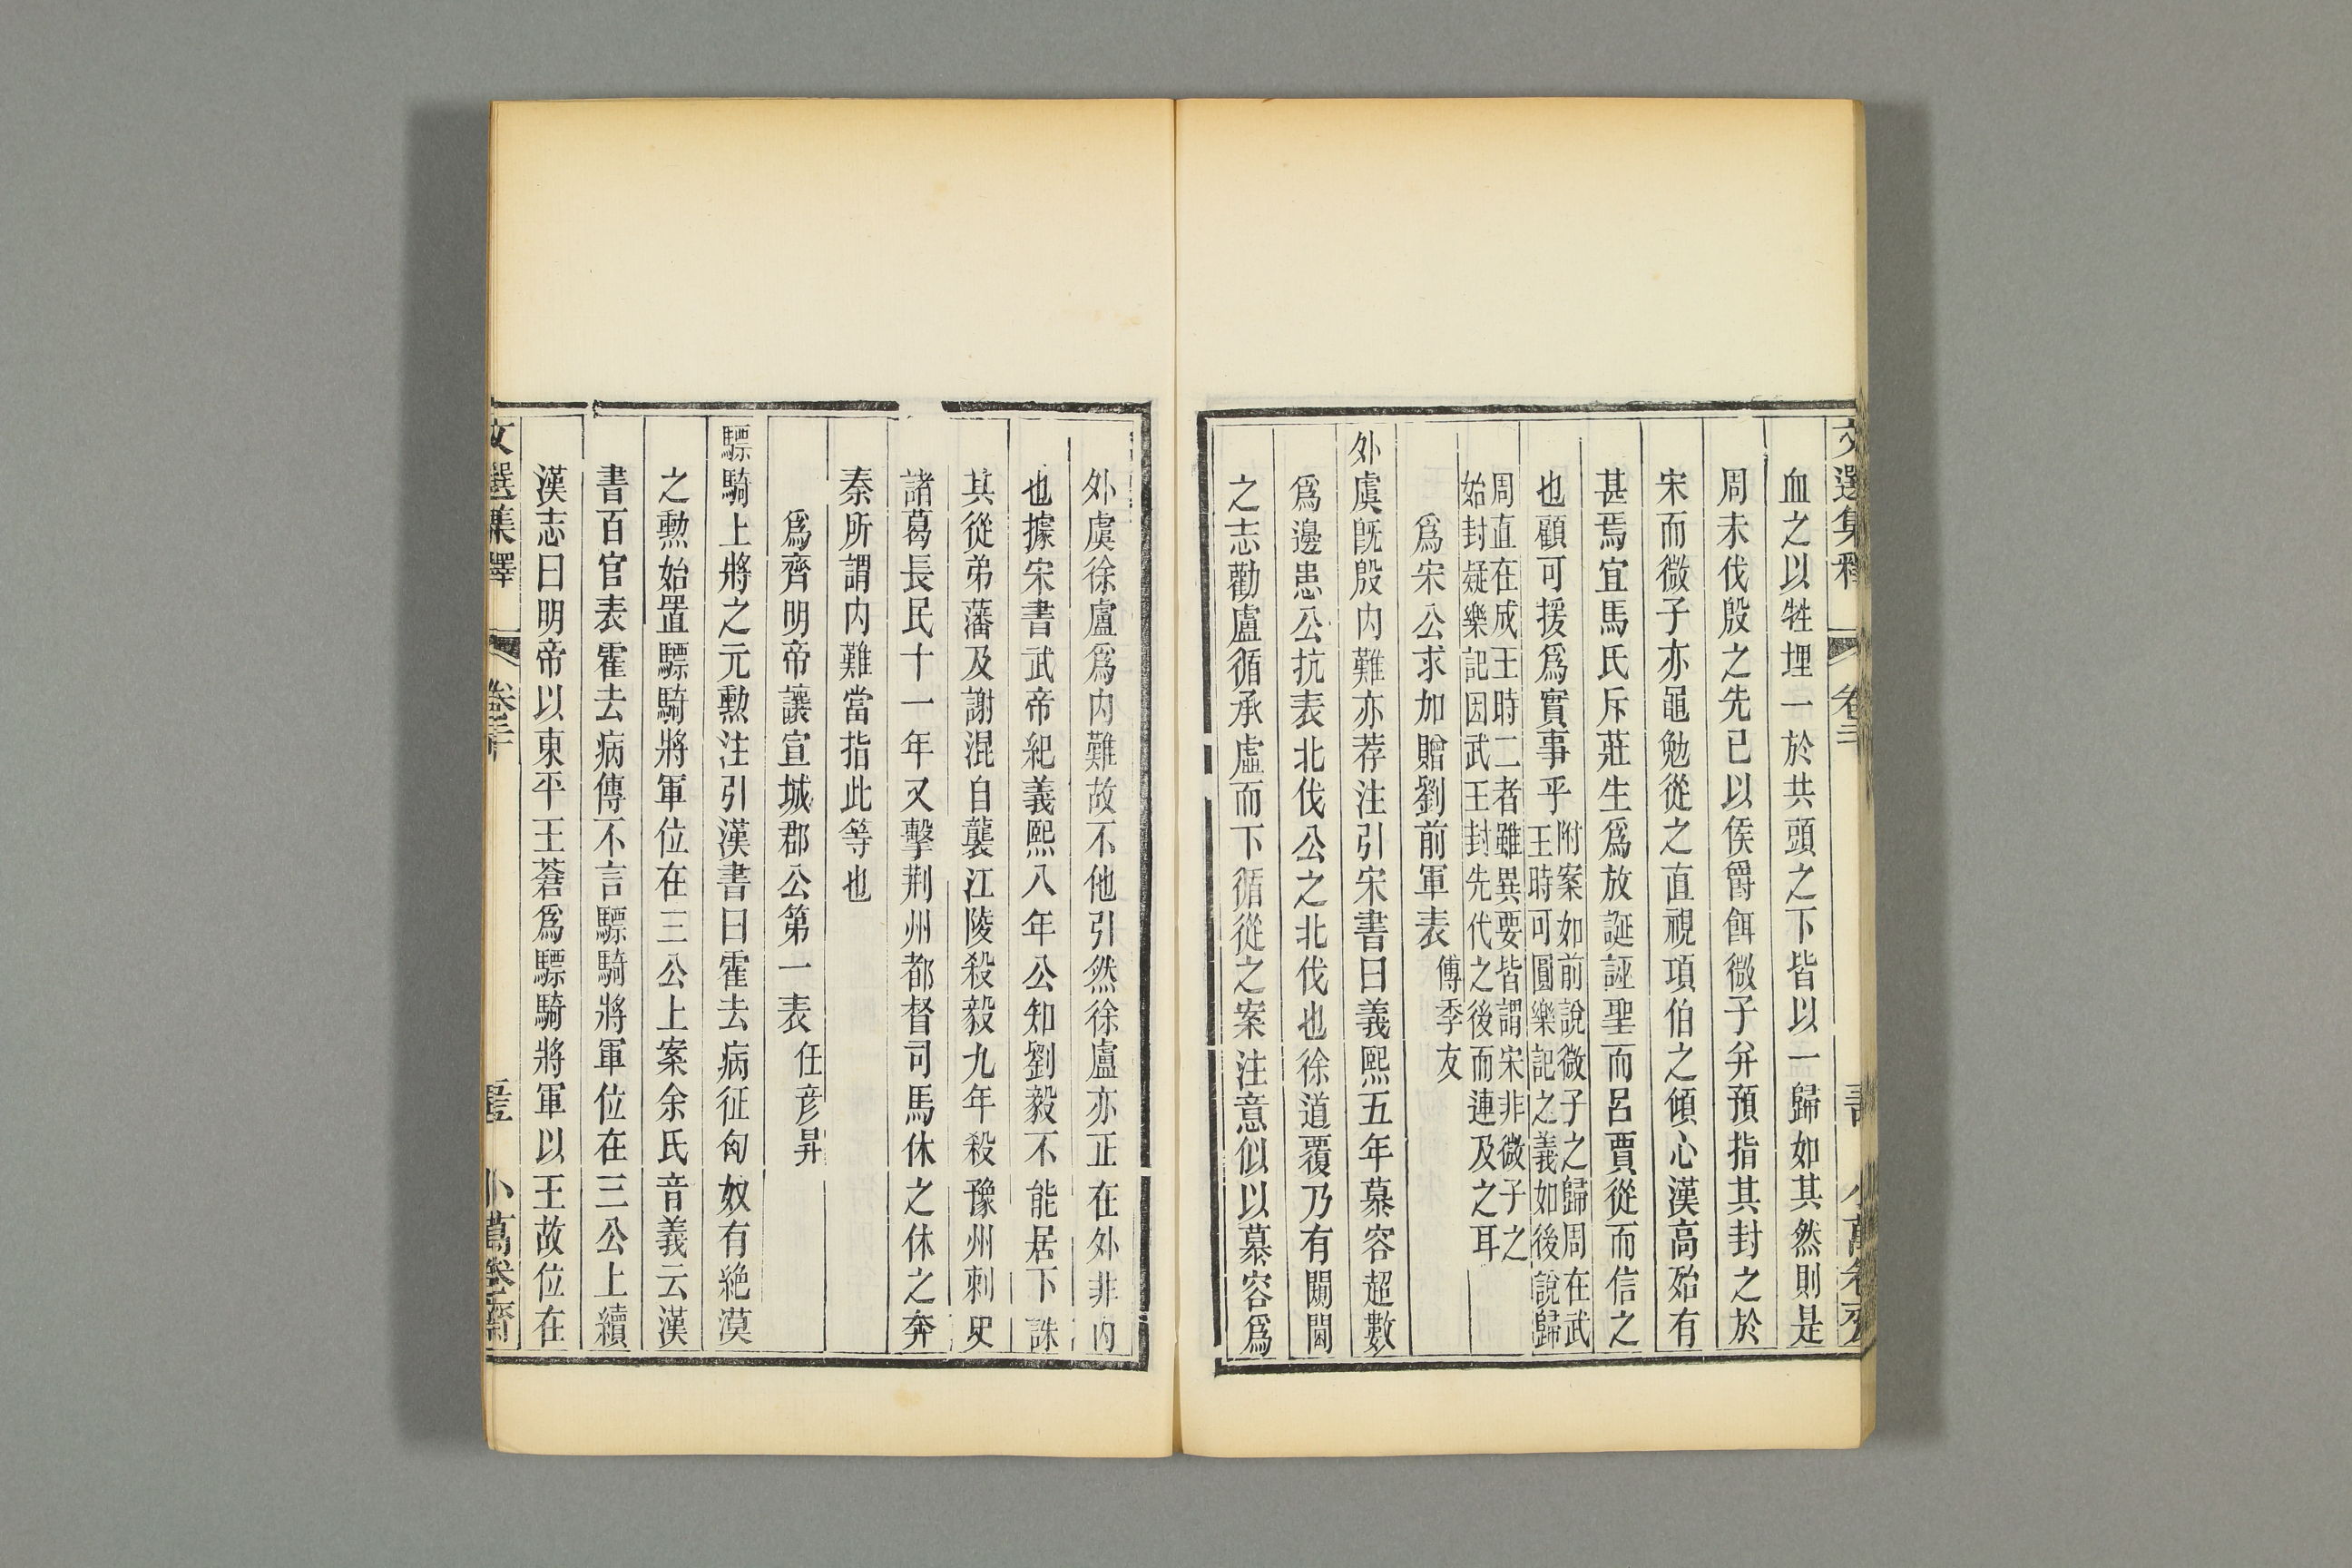 文選集釋 卷二 小萬卷齋
血之以牲埋一於共頭之下皆以一歸如其然則是
周未伐殷之先已以侯爵餌微子弁預指其封之於
宋而微子亦黽勉從之直視項伯之傾心漢高殆有
甚焉宜馬氏斥莊生爲放誕誣聖而呂賈從而信之
也顧可援爲實事乎附案如前說微子之歸周在武
王時可圓樂記之義如後說歸
周直在成王時二者雖異要皆謂宋非微子之
始封疑樂記因武王封先代之後而連及之耳
爲宋公求加贈劉前軍表 傅季友
外虞旣殷内難亦荐注引宋書曰義熙五年慕容超數
爲邊患公抗表北伐公之北伐也徐道覆乃有闚閫
之志勸盧循承虛而下循從之案注意似以慕容爲
外虞徐盧爲内難故不他引然徐盧亦正在外非内
也據宋書武帝紀義熙八年公知劉毅不能居下誅
其從弟藩及謝混自襲江陵殺毅九年殺豫州刺史
諸葛長民十一年又擊荆州都督司馬休之休之奔
秦所謂内難當指此等也
爲齊明帝讓宣城郡公第一表 任彦昇
驃騎上將之元勲注引漢書曰霍去病征匈奴有絶漠
之勲始置驃騎將軍位在三公上案余氏音義云漢
書百官表霍去病傳不言驃騎將軍位在三公上續
漢志曰明帝以東平王蒼爲驃騎將軍以王故位在
文選集釋 卷二十 小萬卷齋